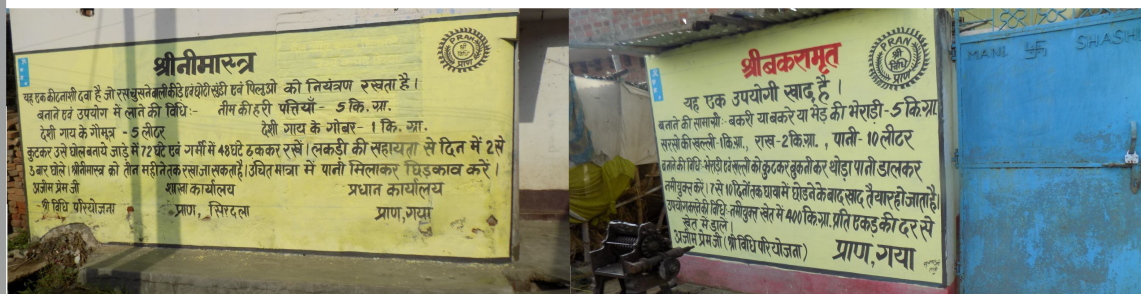 श्रीनीमास्त्र
PRAN
श्री
विधि
प्राण
यह एक कीटनाशी दवा है जो रस चुसने वाली कीडे एवं छोटी सुंडी एवं पिलुओ को नियंत्रण रखता है।
बनाने एवं उपयोग में लाने की विधि :- नीम की हरी पत्तियाँ - 5 कि. ग्रा.
देशी गाय के गोमुत्र - 5 लीटर देशी गाय के गोबर - 1 कि. ग्रा.
कुटकर उसे घोल बनाये जाड़े में 72 घंटे एवं गर्मी में 48 घंटे ढककर रखें। लकडी की सहायता से दिन में 2 से
3 बार घोले। श्रीनीमास्त्र को तीन महीने तक रखा जा सकता है। उचित मात्रा में पानी मिलाकर छिड़काव करें।
अजीम प्रेम जी शाखा कार्यालय प्रधान कार्यालय
- श्री विधि परियोजना - प्राण, सिरदला प्राण, गया
श्रीबकरामृत
PRAN
श्री
विधि
प्राण
यह एक उपयोगी खाद है।
बनाने की सामाग्री :- बकरी या बकरे या भेड़ की भेराड़ी - 5 कि.ग्रा.
सरसो की खल्ली - 1 कि.ग्रा., राख - 2 कि.ग्रा., पानी - 10 लीटर
बनाने की विधि:- भेराड़ी एवं खल्ली को कुटकर बुकनी कर थोड़ा पानी डालकर
नमीयुक्त करें। 7 से 10 दिनों तक छावा में छोडने के बाद खाद तैयार हो जाता है।
उपयोग करने की विधि - नमीयुक्त खेत में 400 कि.ग्रा. प्रति एकड़ की दर से
खेत में डालें।
अजीम प्रेम जी (श्री विधि परियोजना) प्राण, गया
MANI 卐 SHASH